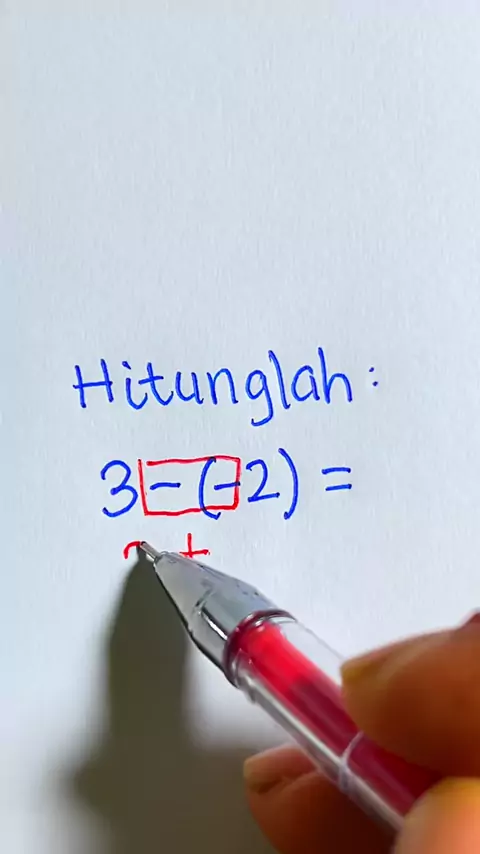 Hitunglah :
3 - (-2) =
+